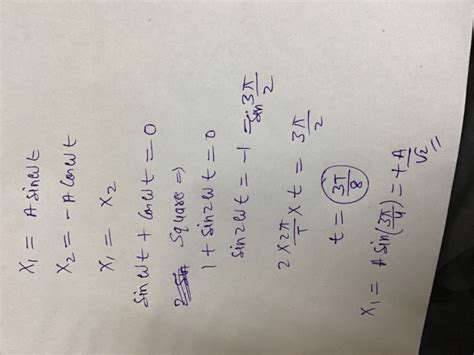 x₁ = A sinωt
x₂ = -A cosωt
x₁ = x₂
sinωt + cosωt = 0
Squares ⇒
1 + sin2ωt = 0
sin2ωt = -1 = sin 3π/2
2 × 2π/T × t = 3π/2
t = 3π/8
x₁ = A sin(3π/4) = +A/√2